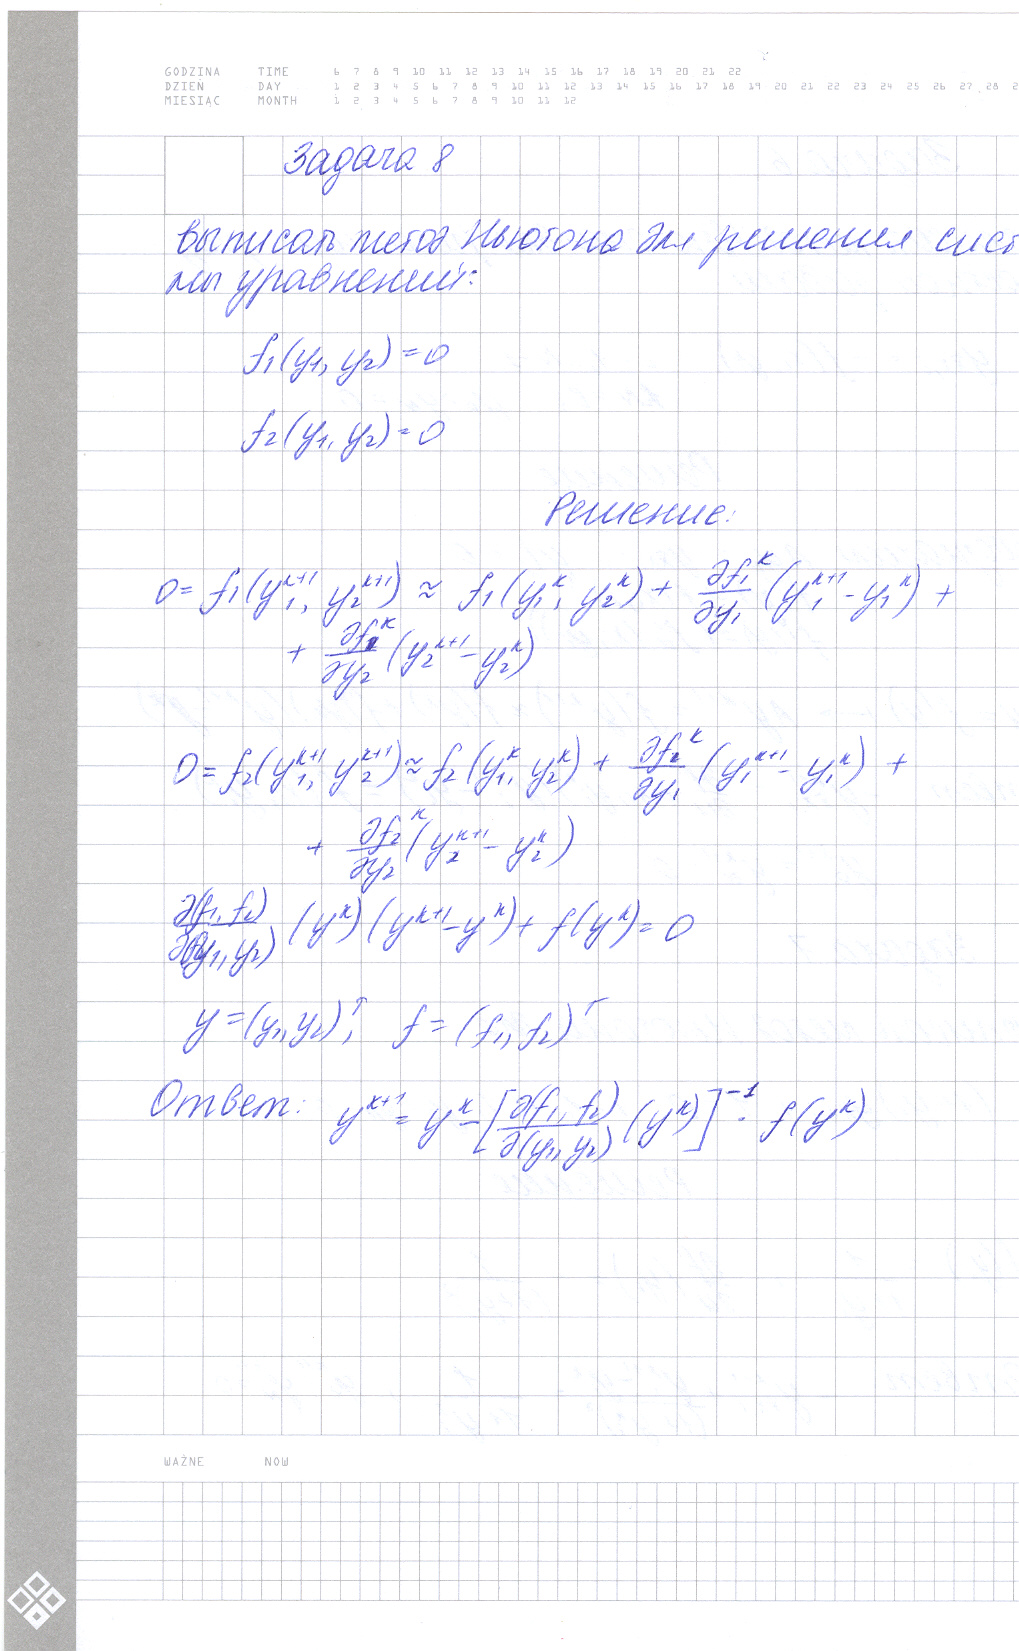 GODZINA TIME 6 7 8 9 10 11 12 13 14 15 16 17 18 19 20 21 22
DZIEŃ DAY 1 2 3 4 5 6 7 8 9 10 11 12 13 14 15 16 17 18 19 20 21 22 23 24 25 26 27 28 2
MIESIĄC MONTH 1 2 3 4 5 6 7 8 9 10 11 12
Задача 8
Выписать метод Ньютона для решения сист
мы уравнений:
f₁(y₁, y₂) = 0
f₂(y₁, y₂) = 0
Решение:
0 = f₁(y₁ᵏ⁺¹, y₂ᵏ⁺¹) ≈ f₁(y₁ᵏ, y₂ᵏ) + ∂f₁ᵏ/∂y₁ (y₁ᵏ⁺¹ - y₁ᵏ) +
+ ∂f₁ᵏ/∂y₂ (y₂ᵏ⁺¹ - y₂ᵏ)
0 = f₂(y₁ᵏ⁺¹, y₂ᵏ⁺¹) ≈ f₂(y₁ᵏ, y₂ᵏ) + ∂f₂ᵏ/∂y₁ (y₁ᵏ⁺¹ - y₁ᵏ) +
+ ∂f₂ᵏ/∂y₂ (y₂ᵏ⁺¹ - y₂ᵏ)
∂(f₁, f₂)/∂(y₁, y₂) (yᵏ)(yᵏ⁺¹ - yᵏ) + f(yᵏ) = 0
y = (y₁, y₂)ᵀ, f = (f₁, f₂)ᵀ
Ответ: yᵏ⁺¹ = yᵏ - [∂(f₁, f₂)/∂(y₁, y₂) (yᵏ)]⁻¹ · f(yᵏ)
WAŻNE NOW